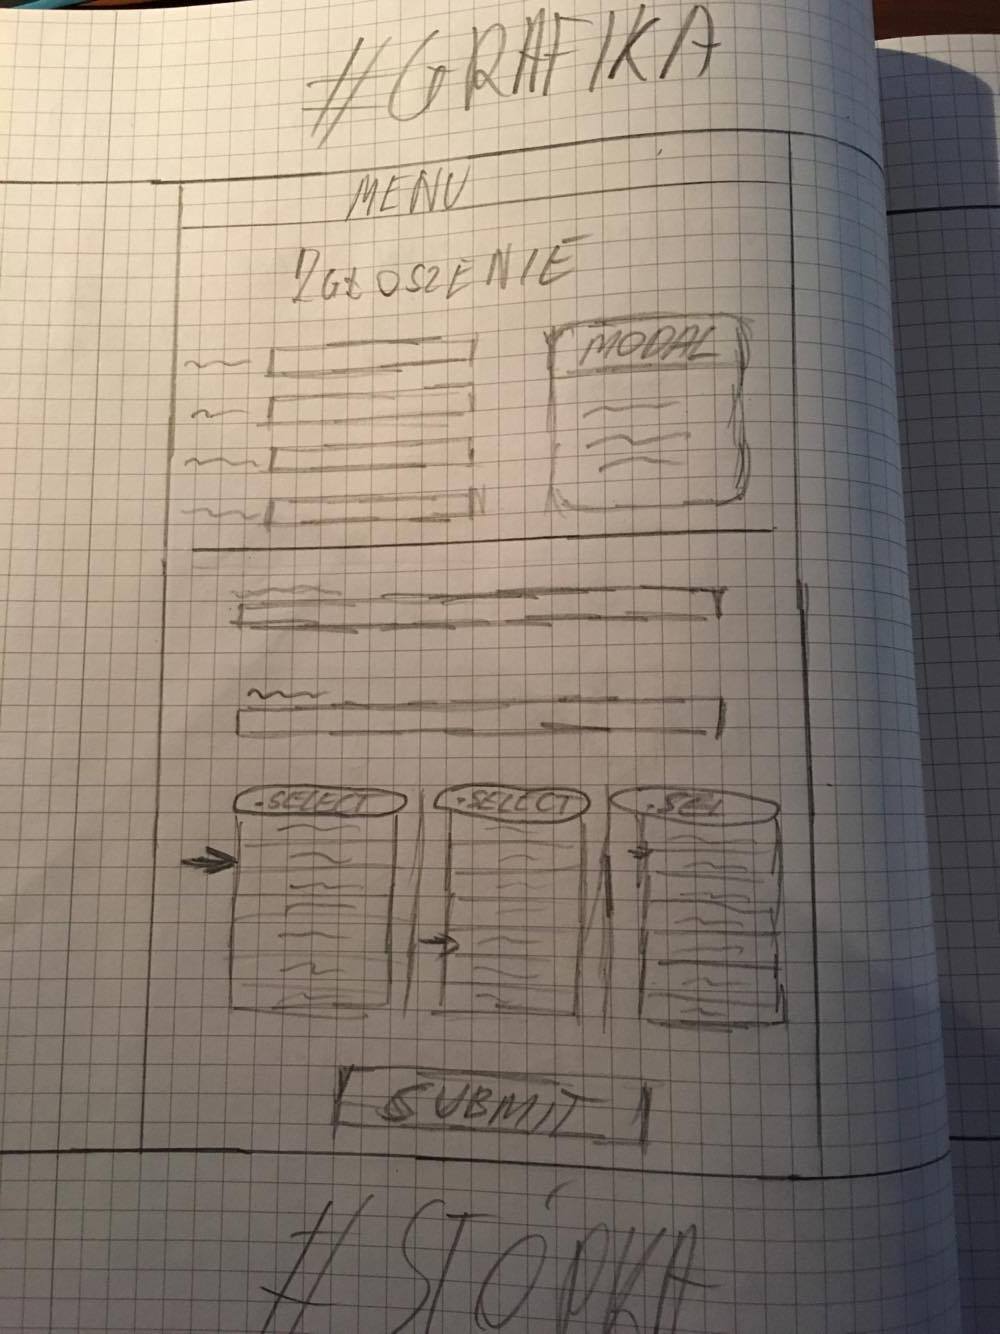 #GRAFIKA
MENU
ZGŁOSZENIE
MODAL
.SELECT .SELECT .SEL
SUBMIT
#STÓPKA